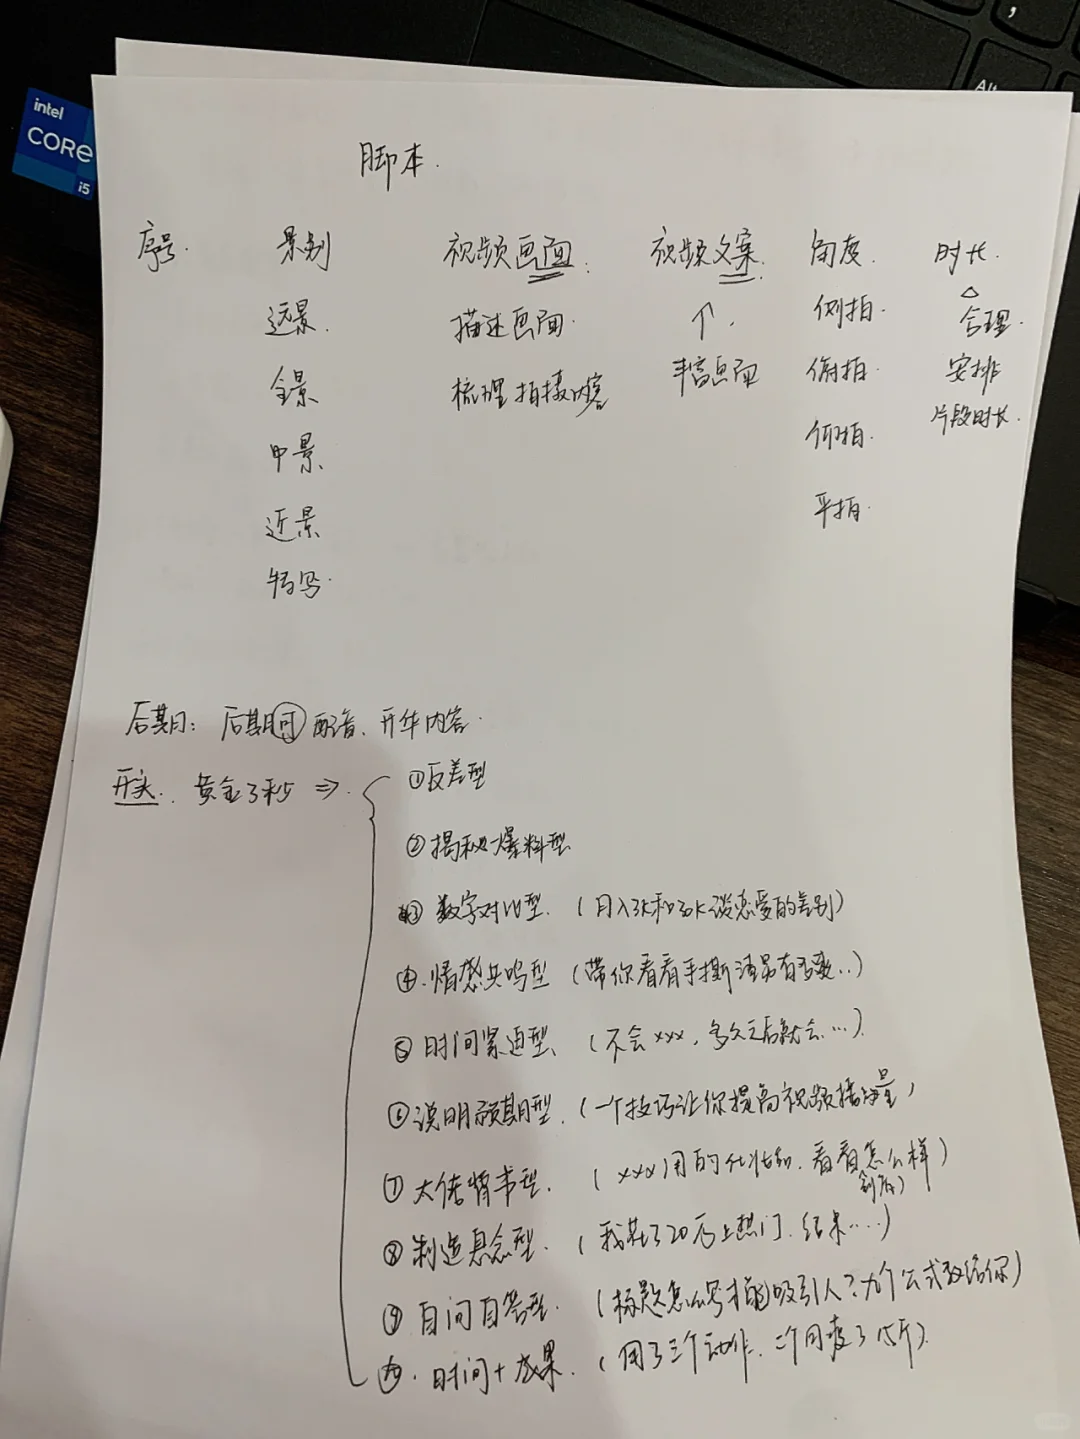 intel
CORE
i5
Alt
脚本.
序号. 景别 视频画面. 视频文案. 角度. 时长.
远景. 描述画面. ↑. 侧拍. △ 合理.
全景 梳理拍摄内容 丰富画面 俯拍. 安排
中景. 仰拍. 片段时长.
近景 平拍.
特写.
后期: 后期可配音、升华内容.
开头. 黄金3秒 ⇒
①反差型
②揭秘爆料型
③数字对比型. (月入3k和30k谈恋爱的差别)
④.情感共鸣型 (带你看看手撕渣男有多爽..)
⑤时间紧迫型、 (不会xxx,多久之后就会...).
⑥说明预期型. (一个技巧让你提高视频播放量)
⑦大佬背书型. (xxx用的化妆品,看看怎么样)
⑧制造悬念型. (我花了20万上热门.结果....)
⑨自问自答型. (标题怎么写才能吸引人?九个公式教给你)
⑩.时间+成果. (用了三个动作、三个月瘦了15斤).